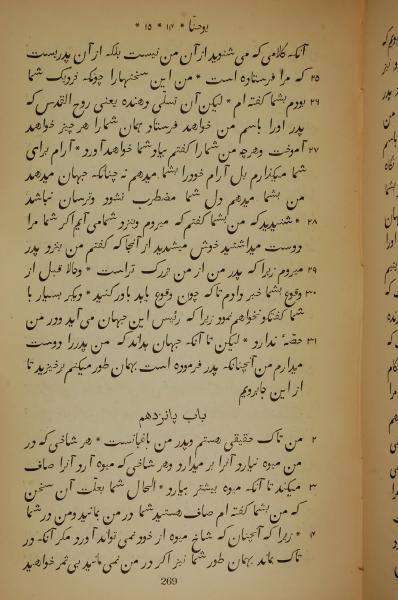 یوحنا * ۱۴ * ۱۵ *
آنکه کلامی که می شنوید از آن من نیست بلکه از آن پدریست
۲۵ که مرا فرستاده است * من این سخنهارا چونکه نزدیک شما
۲۶ بودم بشما کفته ام * لیکن آن تسلی دهنده یعنی روح القدس که
پدر اورا باسم من خواهد فرستاد همان شمارا هر چیز خواهد
۲۷ آموخت وهرچه من شمارا کفتم بیاد شما خواهد آورد * آرام برای
شما میکذارم بل آرام خودرا بشما میدهم نه چنانکه جهان میدهد
من بشما میدهم دل شما مضطرب نشود وترسان نباشد
۲۸ * شنیدید که من بشما کفتم که میروم ونزد شما می آیم اکر شما مرا
دوست میداشتید خوش میشدید از آنجا که کفتم من بنزد پدر
۲۹ میروم زیرا که پدر من از من بزرک تراست * وحالا قبل از
۳۰ وقوع بشما خبر دادم تا که چون وقوع یابد باور کنید * ودیکر بسیار با
شما کفتکو نخواهم نمود زیرا که رئیس این جهان می آید ودر من
۳۱ حصّهٔ ندارد * لیکن تا آنکه جهان بداند که من پدررا دوست
میدارم من آنچنانکه پدر فرموده است بهمان طور میکنم برخیزید تا
از این جا برویم
باب پانزدهم
من تاک حقیقی هستم وپدر من باغبانست * هر شاخی که در ۲
من میوه نیارد آنرا بر میدارد وهر شاخی که میوه آرد آنرا صاف
۳ میکند تا آنکه میوه بیشتر بیارد * الحال شما بعلّت آن سخن
که من بشما کفته ام صاف هستید شما در من بمانید ومن در شما
۴ * زیرا که آنچنان که شاخ میوه از خود نمی تواند آورد مکر آنکه در
تاک بماند بهمان طور شما نیز اکر در من نمی مانید بی ثمر خواهید
269